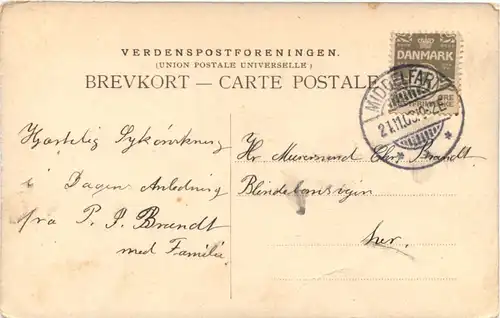 VERDENSPOSTFORENINGEN.
(UNION POSTALE UNIVERSELLE)
BREVKORT — CARTE POSTALE
DANMARK
MIDDELFART
21.11.08
ØRE
Hjertelig Lykønskning
i Dagens Anledning
fra P. J. Brandt
med Familie
Hr Murersvend Chr. Brandt
her.